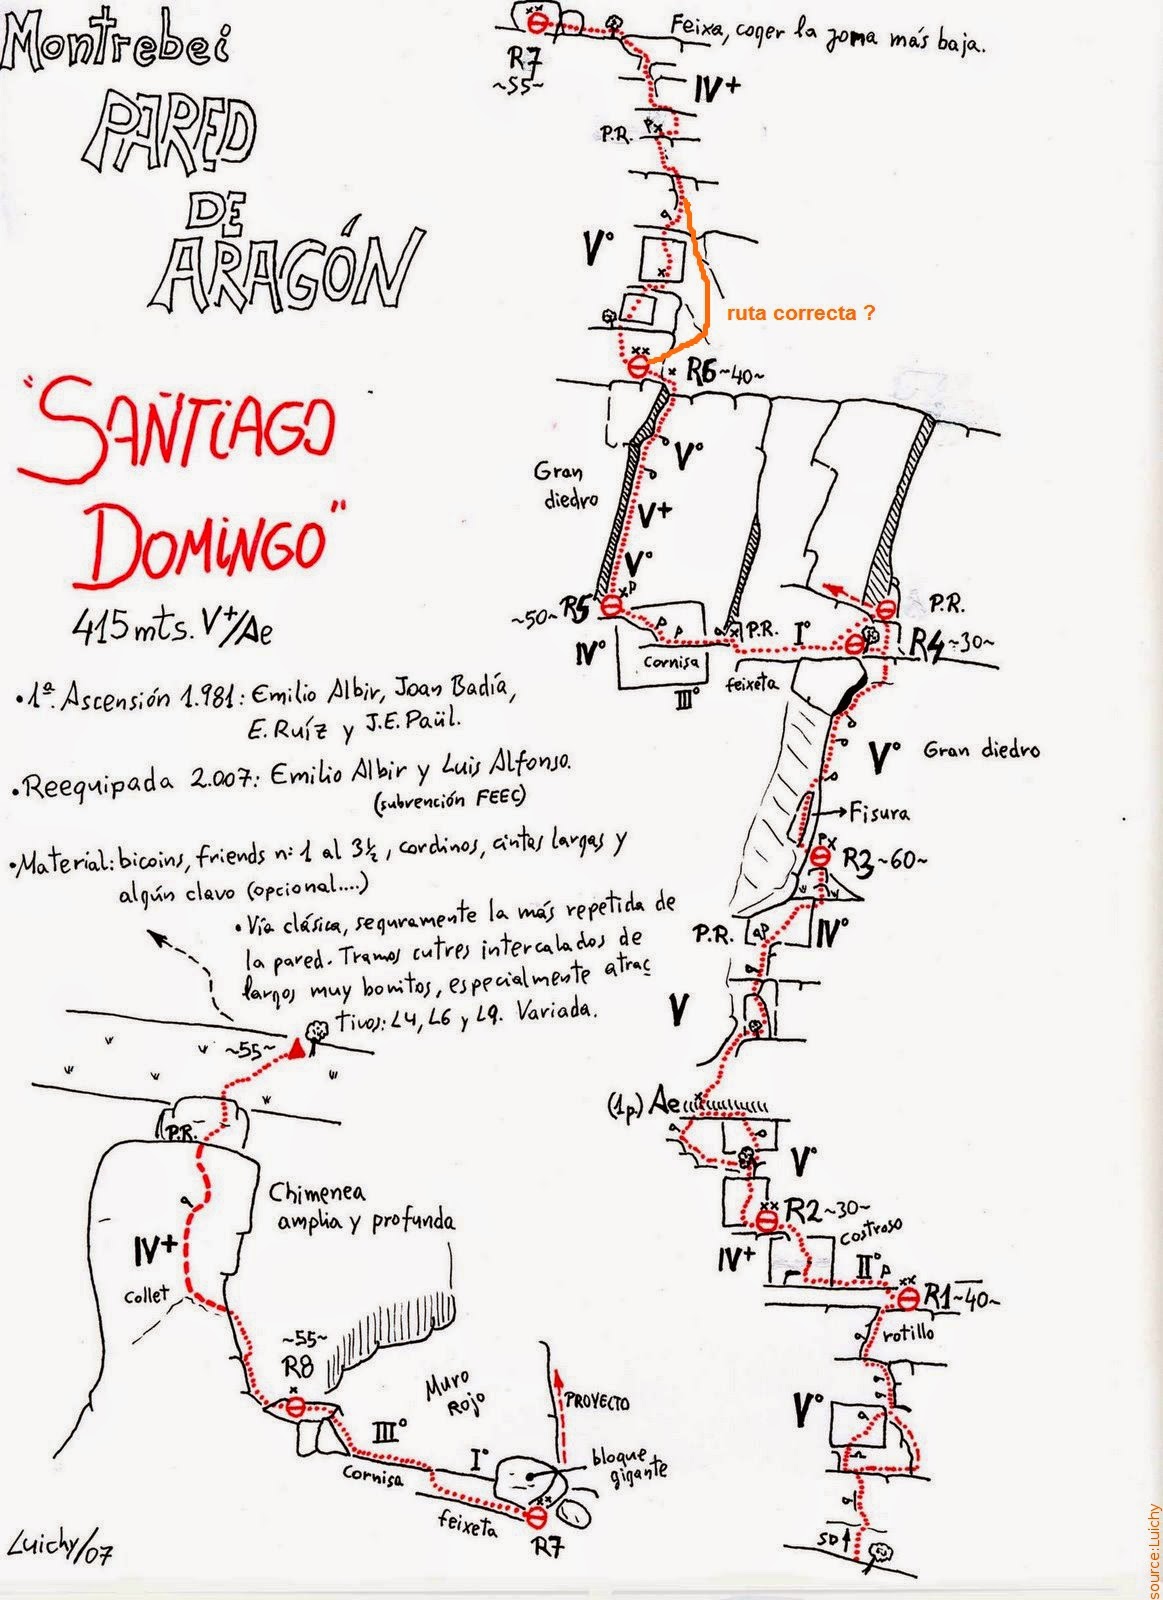 Montrebei
PARED
DE
ARAGÓN
"SANTIAGO
DOMINGO"
415 mts. V+/Ae
• 1ª. Ascensión 1.981: Emilio Albir, Joan Badía,
E. Ruíz y J.E. Paül.
• Reequipada 2.007: Emilio Albir y Luis Alfonso.
(subvención FEEC)
• Material: bicoins, friends nº 1 al 3½, cordinos, cintas largas y
algún clavo (opcional....)
• Vía clásica, seguramente la más repetida de
la pared. Tramos cutres intercalados de
largos muy bonitos, especialmente atrac
tivos: L4, L6 y L9. Variada.
~55~
P.R.
Chimenea
amplia y profunda
IV+
Collet
~55~
R8
Muro
Rojo
III°
Cornisa
I°
feixeta
PROYECTO
bloque
gigante
R7
Luichy/07
Feixa, coger la zona más baja.
R7
~55~
IV+
P.R.
V°
ruta correcta ?
R6 ~40~
Gran
diedro
V°
V+
V°
~50~ R5
P.R.
I°
P.R.
R4 ~30~
IV°
Cornisa
III°
feixeta
V°
Gran diedro
Fisura
R3 ~60~
P.R.
IV°
V
(1p.) Ae
V°
R2 ~30~
Costroso
IV+
II°
R1 ~40~
rotillo
V°
SD
source:Luichy